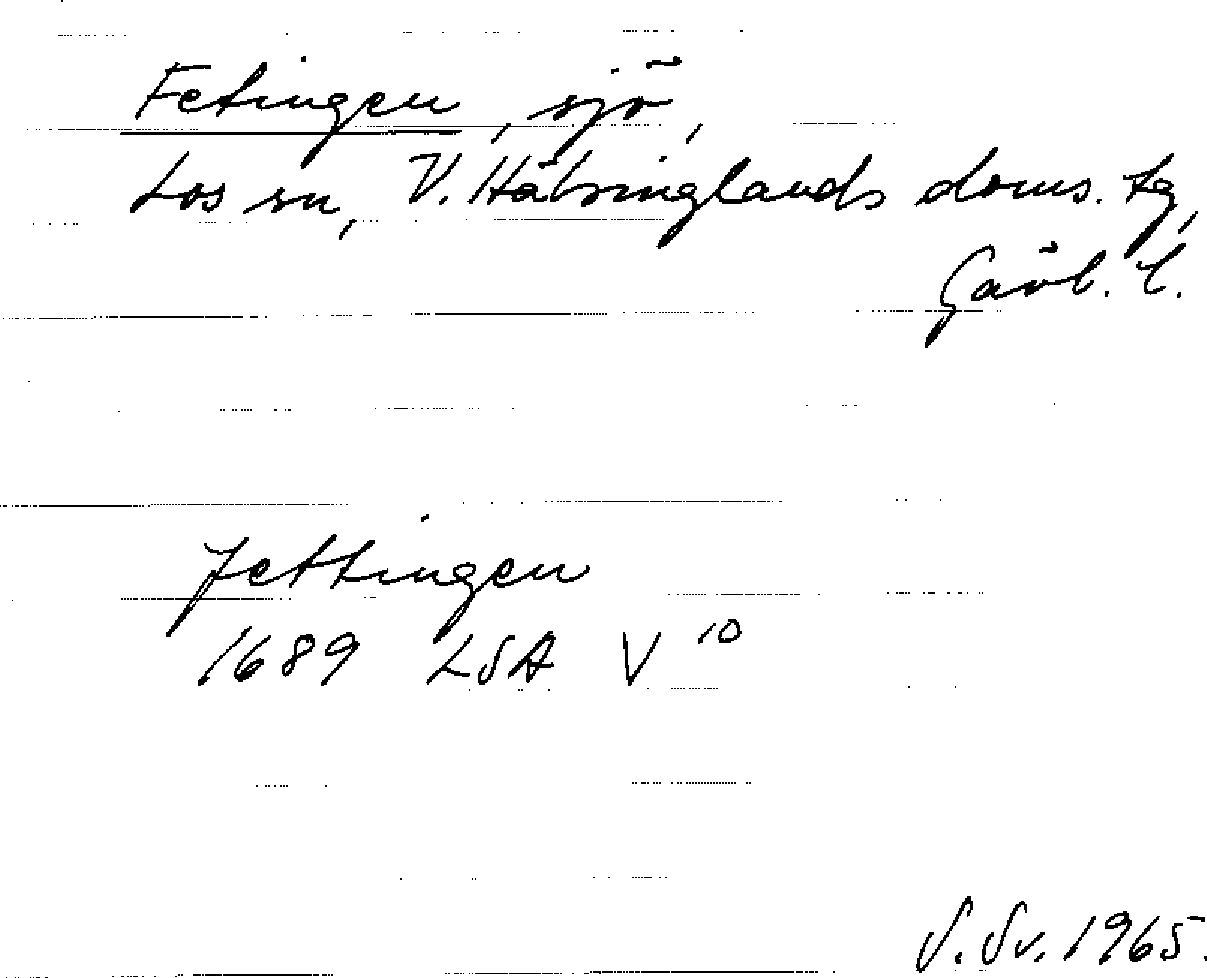 Fetingen, sjö,
Los sn, V. Hälsinglands doms. tg,
Gävl. l.
Fettingen
1689 LSA V 10
S. Sv. 1965.